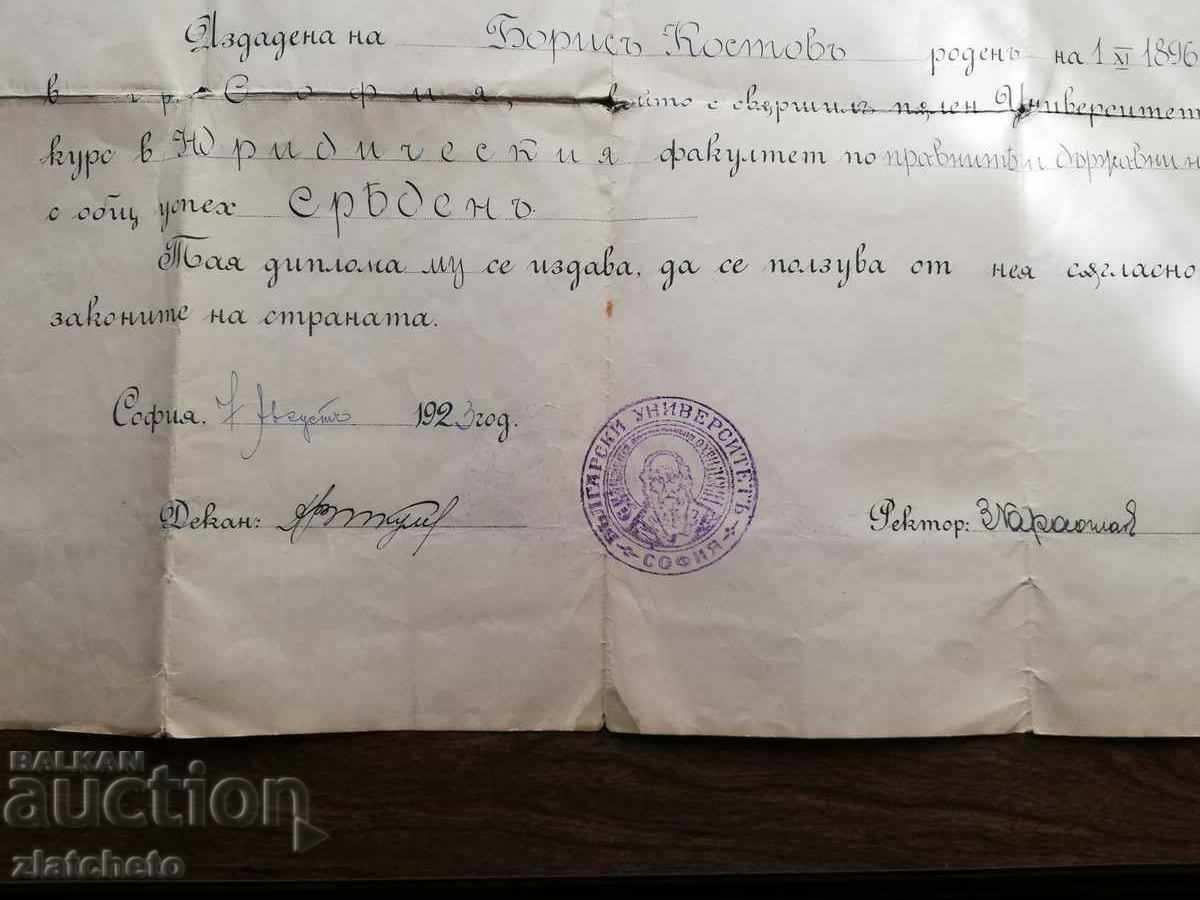 Издадена на Борисъ Костовъ роденъ на 1 XI 1896
в гр. София, който е свършилъ пълен Университет
курс в Юридическия факултет по правнитѣ и държавни н
с общ успех Срѣденъ
Тая диплома му се издава, да се ползува от нея съгласно
законите на страната.
София, 7 Августъ 1923 год.
Декан:
Ректор:
БЪЛГАРСКИ УНИВЕРСИТЕТЪ
СОФИЯ
BALKAN
auction
zlatcheto